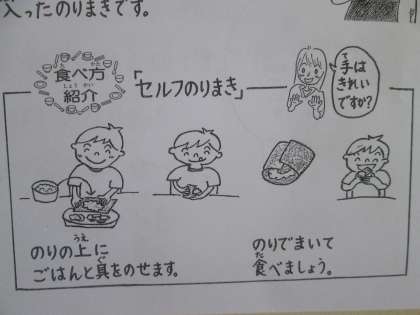 入ったのりまきです。
食べ方
紹介
「セルフのりまき」
手は
きれい
ですか?
のりの上に
ごはんと具をのせます。
のりでまいて
食べましょう。